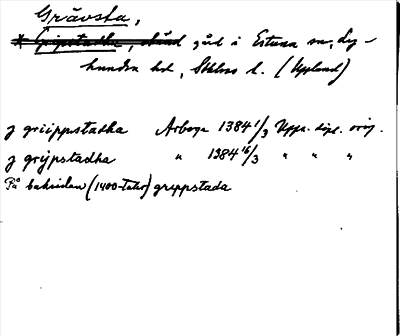 Grävsta,
* Gripstadha, okänd gård i Estuna sn, Ly-
hundra hd, Sthlms l. (Uppland)
j griippstadha Arboga 1384 1/3 Uppn. dipl. orig.
j grijpstadha " 1384 16/3 " " "
På baksidan (1400-talet) greppstada